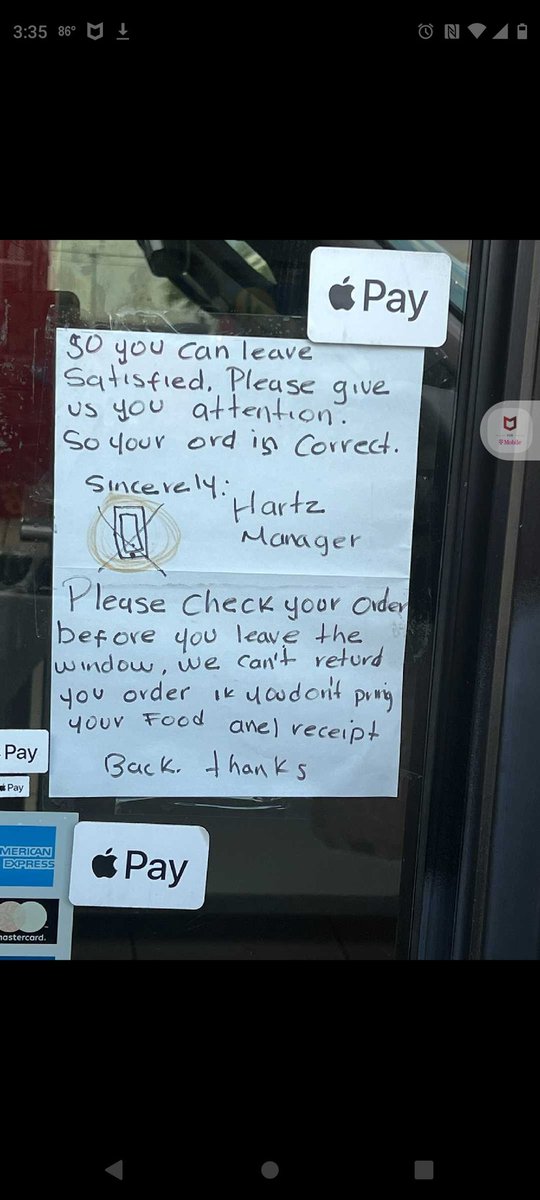 3:35 86°
Pay
So you can leave
Satisfied. Please give
us you attention.
So your ord is correct.
Sincerely:
Hartz
Manager
Please check your order
before you leave the
window, we can't returd
you order ik youdon't pring
your Food anel receipt
Back. thanks
Pay
Pay
MERICAN
EXPRESS
Pay
mastercard.
Mobile